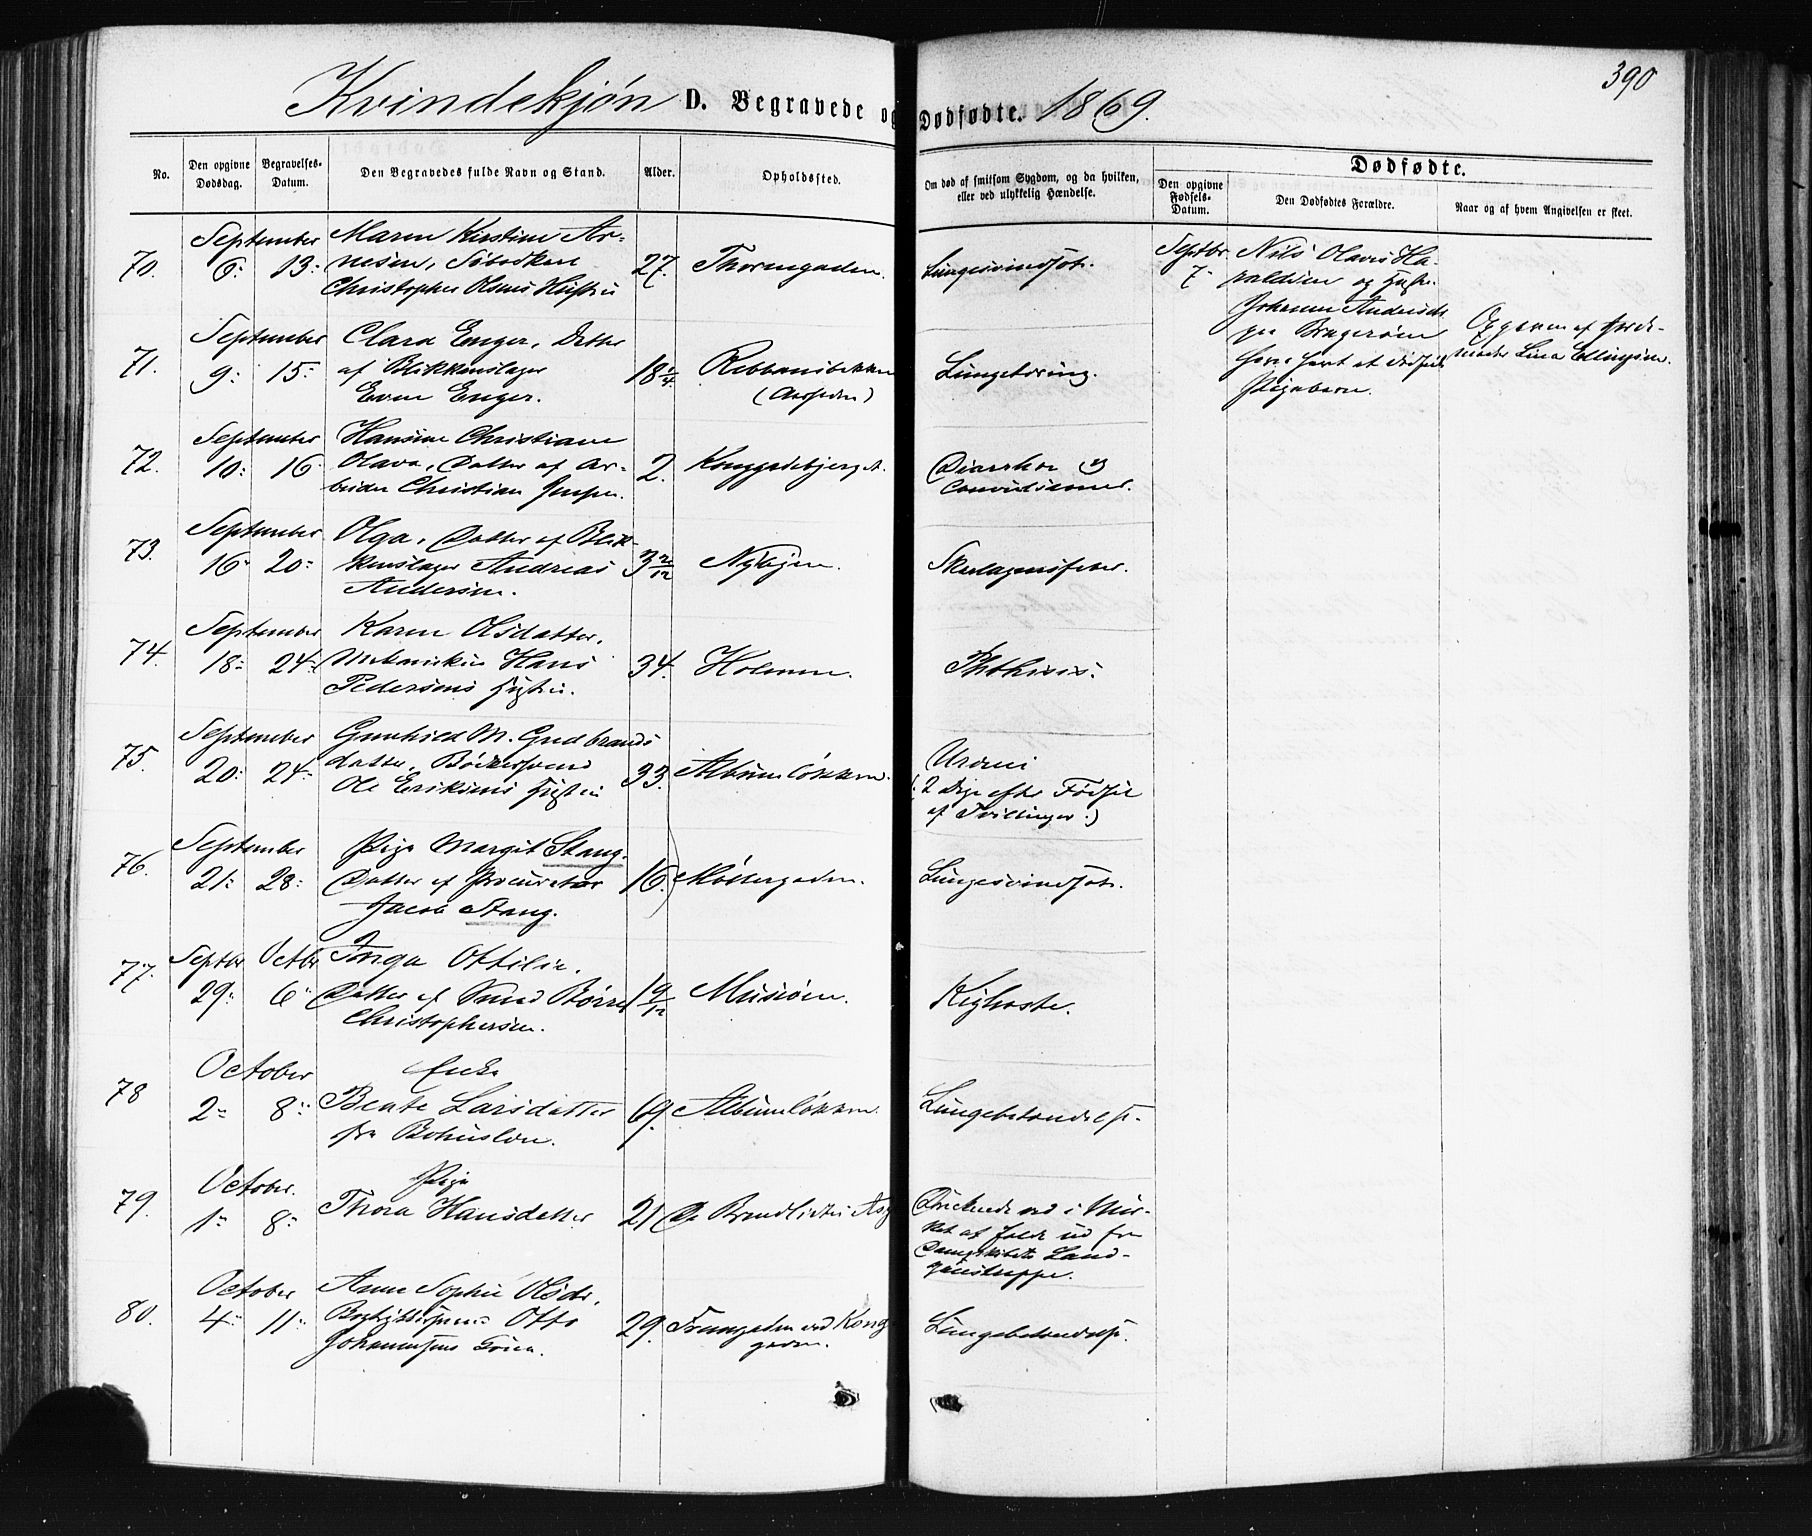 390
Kvindekjøn D. Begravede og Dødfødte. 1869.
No.
Den opgivne Dødsdag.
Begravelses-Datum.
Den Begravedes fulde Navn og Stand.
Alder.
Opholdssted.
Om død af smitsom Sygdom, og da hvilken, eller ved ulykkelig Hændelse.
Dødfødte.
Den opgivne Fødsels-Datum.
Den Dødfødtes Forældre.
Naar og af hvem Angivelsen er skeet.
70. September 6: 13:
Maren Kirstine Ar-
nesen, Søbodken
Christopher Olsens Hustru
27. Thornegaden. Lungesvindsot.
Septbr 7
Nils Olaves Ha-
raldsen og Hustru
Johanne Andersdt
paa Bragerøen
have havt et dødfødt
Pigebarn.
Opgiven af Jorde-
moder Lina Ellingsen.
71. September 9: 15:
Clara Enger, Datter
af Blikkenslager
Even Enger.
18 1/4 Rebbansbakken
(Aassiden)
Lungetæring.
72. September 10: 16
Hansine Christiane
Olava, Datter af Ar-
beider Christian Jensen.
2. Konggadebjerget.
Diarrhoe og
Convulsioner.
73. September 16 20:
Olga, Datter af Blik-
kenslager Andreas
Andersen.
3 2/12 Nybyen. Skarlagensfeber.
74. September 18: 24:
Karen Olsdatter,
Mekanikus Hans
Pedersens Hustru.
34. Holmen. Phthisis.
75. September 20: 24:
Gunhild M. Gudbrands
datter, Bødkersvend
Ole Eriksens Hustru
33. Albumløkken.
Uræmi
(2 Dage efter Fødsel
af Tvillinger.)
76. September 21: 28:
Pige Margit Stang.
Datter af Procurator
Jacob Stang.
16. Møllergaden. Lungesvindsot.
77. Septbr 29: Octbr 6
Inga Ottilia.
Datter af Smed Børre
Christophersen.
1 9/12 Musiøen. Kighoste.
78 October 2: 8:
Enke
Beate Larsdatter
fra Bohuslen.
69. Albumløkken. Lungebetændelse.
79. October. 1: 8:
Pige
Thora Hansdatter
21
Druknede ved i Mør-
ket at falde ud fra
Dampskibets Land-
gangstrappe.
80. October 4: 11:
Anne Sophie Olsdr,
Otto
Johannesens
29. Trangaden ved Kong
gaden.
Lungebetændelse.